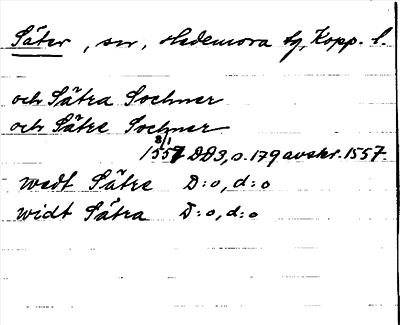 Säter, sn, Hedemora tg, Kopp. l.
och Sätra Sochner
och Sätre Sochner
8/1
1557 DD3, s. 179 avskr. 1557.
wedt Sätre D:o, d:o
widt Sätra D:o, d:o